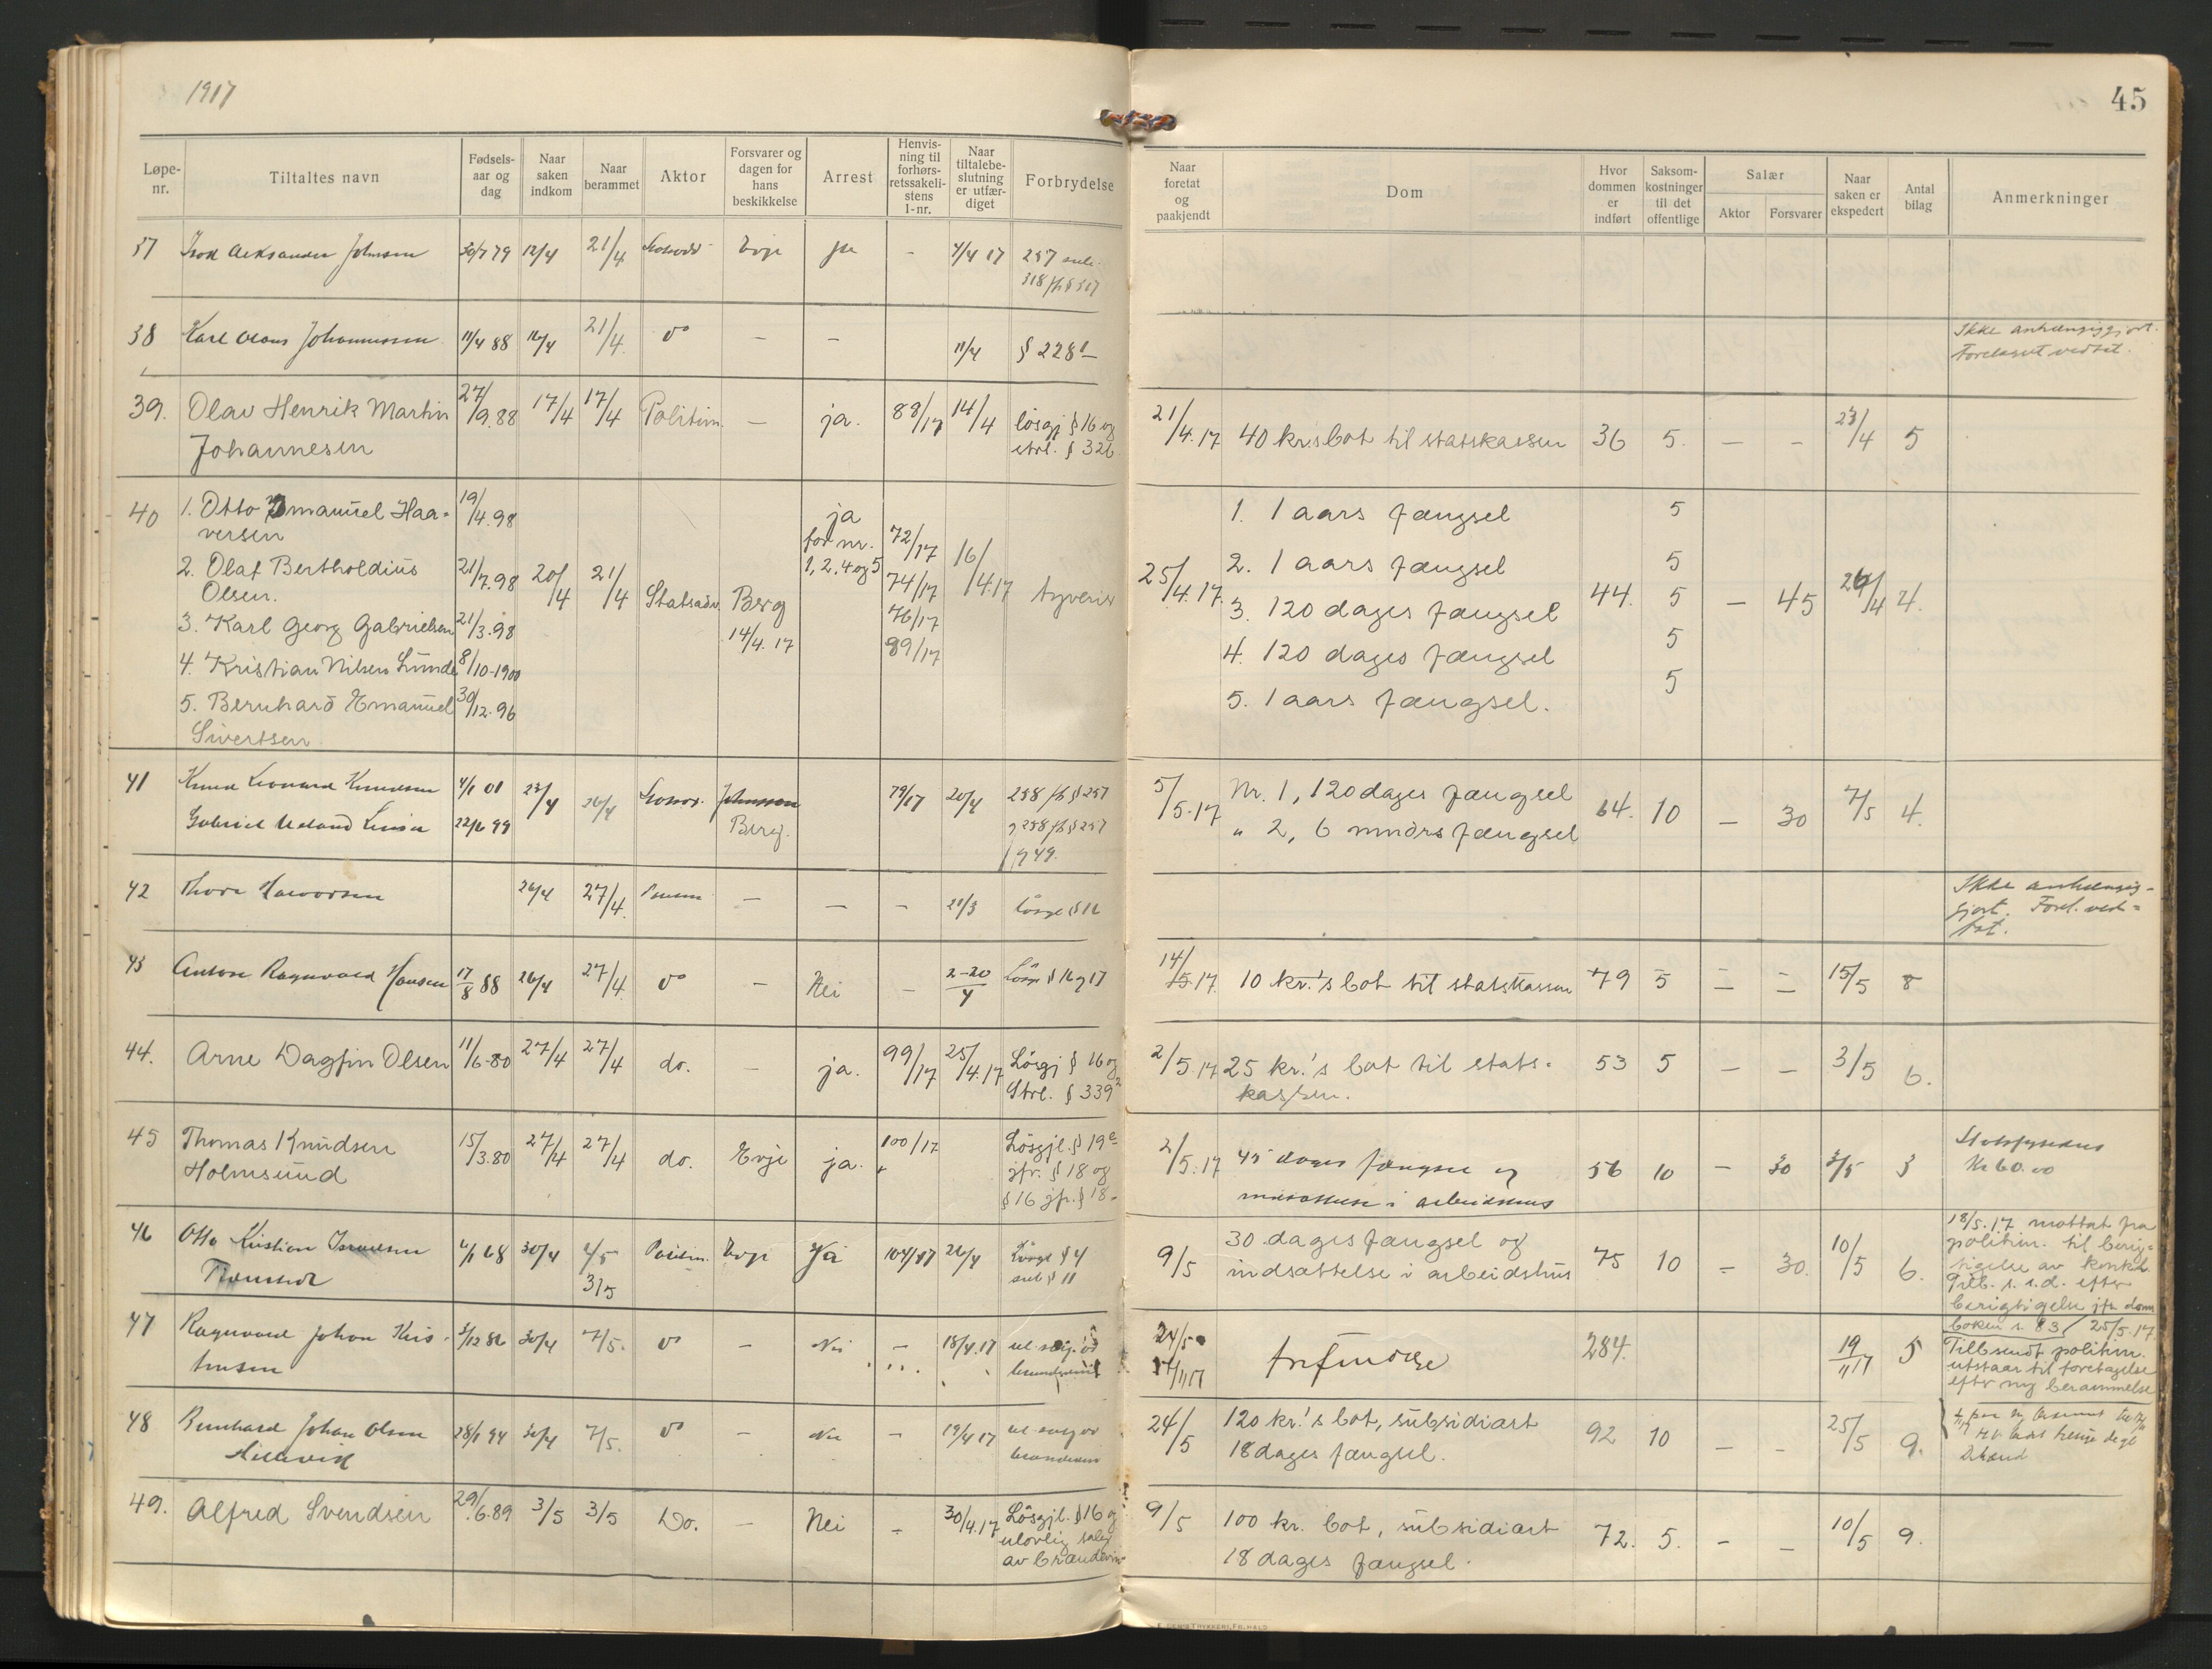 1917
45
Løpe-nr. Tiltaltes navn Fødsels-aar og dag Naar saken indkom Naar berammet Aktor Forsvarer og dagen for hans beskikkelse Arrest Henvis-ning til forhørs-retssakeli-stens l-nr. Naar tiltalebe-slutning er utfær-diget Forbrydelse
Naar foretat og paakjendt Dom Hvor dommen er indført Saksom-kostninger til det offentlige Salær Aktor Forsvarer Naar saken er ekspedert Antal bilag Anmerkninger
37 Aleksander Johnsen 30/7 79 12/4 21/4 Evje ja - 4/4 17 257
318 jfr § 317
38 Karl Olaus Johannessen 11/4 88 21/4 do - - 11/4 § 228 1-
Ikke anhængiggjort.
Forelægget vedtat.
39. Olav Henrik Martin 27/9.88 17/4 17/4 Politim. - ja. 88/17 14/4 løsgj § 16 og
Johannesen strl. § 326
21/4.17 40 kr.s bot til statskassen 36 5. - - 23/4 5
40 1. Otto Emanuel Haa-
versen 19/4.98
2. Olaf Bertholdius
Olsen. 21/7.98
3. Karl Georg Gabrielsen 21/3.98
4. Kristian Nilsen Lunde 8/10-1900
5. Bernhard Emanuel
Sivertsen 30/12.96
20/4 21/4 Statsadv. Berg
14/4. 17
ja
for nr.
1, 2, 4 og 5
72/17
74/17
76/17
89/17
16/4.17 tyveri
25/4.17.
1. 1 aars fængsel 5
2. 1 aars fængsel 5
3. 120 dages fængsel 5
4. 120 dages fængsel 5
5. 1 aars fængsel. 5
44. - 45 26/4 4.
41 Knud Leonard Knudsen 4/1 01 23/4 26/4 Johnsen 79/17 20/4 258 jfr § 257
Gabriel 22/6 99 Berg. 258 jfr § 257
49.
5/5.17 Nr. 1, 120 dages fængsel 64. 10 - 30 7/5 4.
" 2, 6 mndrs fængsel
42 Thora Halvorsen 26/4 27/4. - - - 21/3
Ikke anhængig-
gjort. Forel. ved-
tat.
43 Anton Ragnvald Hansen 17/8 88 26/4 27/4. do - Nei - 2-20/4 Løsgj § 16 og 17
14/5.17. 10 kr.'s bot til statskassen 79 5 - - 15/5 8
44. Arne Dagfin Olsen 11/6-80 27/4 27/4 do. - ja. 99/17 25/4.17 Løsgj § 16 og
Strl. § 339²
2/5.17 25 kr.'s bot til stats-
kassen. 53 5 - - 3/5 6.
45 Thomas Knudsen 15/3.80 27/4 27/4 do. Evje ja. 100/17 Løsgjl. § 19
Holmsund jfr. § 18 og
§ 16 jfr. § 18-
2/5.17 45 dages fængsel og
indsættelse i arbeidshus 56 10 - 30 3/5 3
Kr 60.00
46 Otto Kristian 4/1 68 30/4 2/5 Politim. Evje Ja 104/17 26/4 Løsgl § 4
3/5 § 11
9/5 30 dages fængsel og
indsættelse i arbeidshus 75 10 - 30. 10/5 6.
18/5.17 mottat fra
politim. til berig-
tigelse av
Tilb. s. s. d. efter
berigtigelse jfr. dom
boken s. 83/ 25/5.17.
47 Ragnvald Johan Kris-
tensen 3/12 82 30/4 7/5. do - Nei - 18/4.17
24/5
14/11 17 frifindelse 284. 19/11 17 5
Tilbsendt politim.
utstaar til foretagelse
efter ny berammelse
48 Bernhard Johan Olsen 28/1 94 30/4 7/5. do - Nei - 19/4 17
24/5 120 kr.'s bot, subsidiært
18 dages fængsel. 92 10 - - 25/5 9.
49. Alfred Svendsen 29/6.89 3/5 3/5 Do. - Nei - 30/4.17 Løsgjl. § 16 og
ulovlig salg
av brændevin
9/5 100 kr. bot, subsidiært
18 dages fængsel. 72. 5. - - 10/5 9.